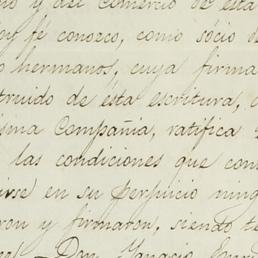 y del Comercio de esta
doy fé conozco, como sócio de
hermanos, cuya firma
truido de esta escritura,
sima Compañia, ratifica
las condiciones que cons
irse en su perjuicio ning
ron y firmaron, siendo te
Don Ignacio